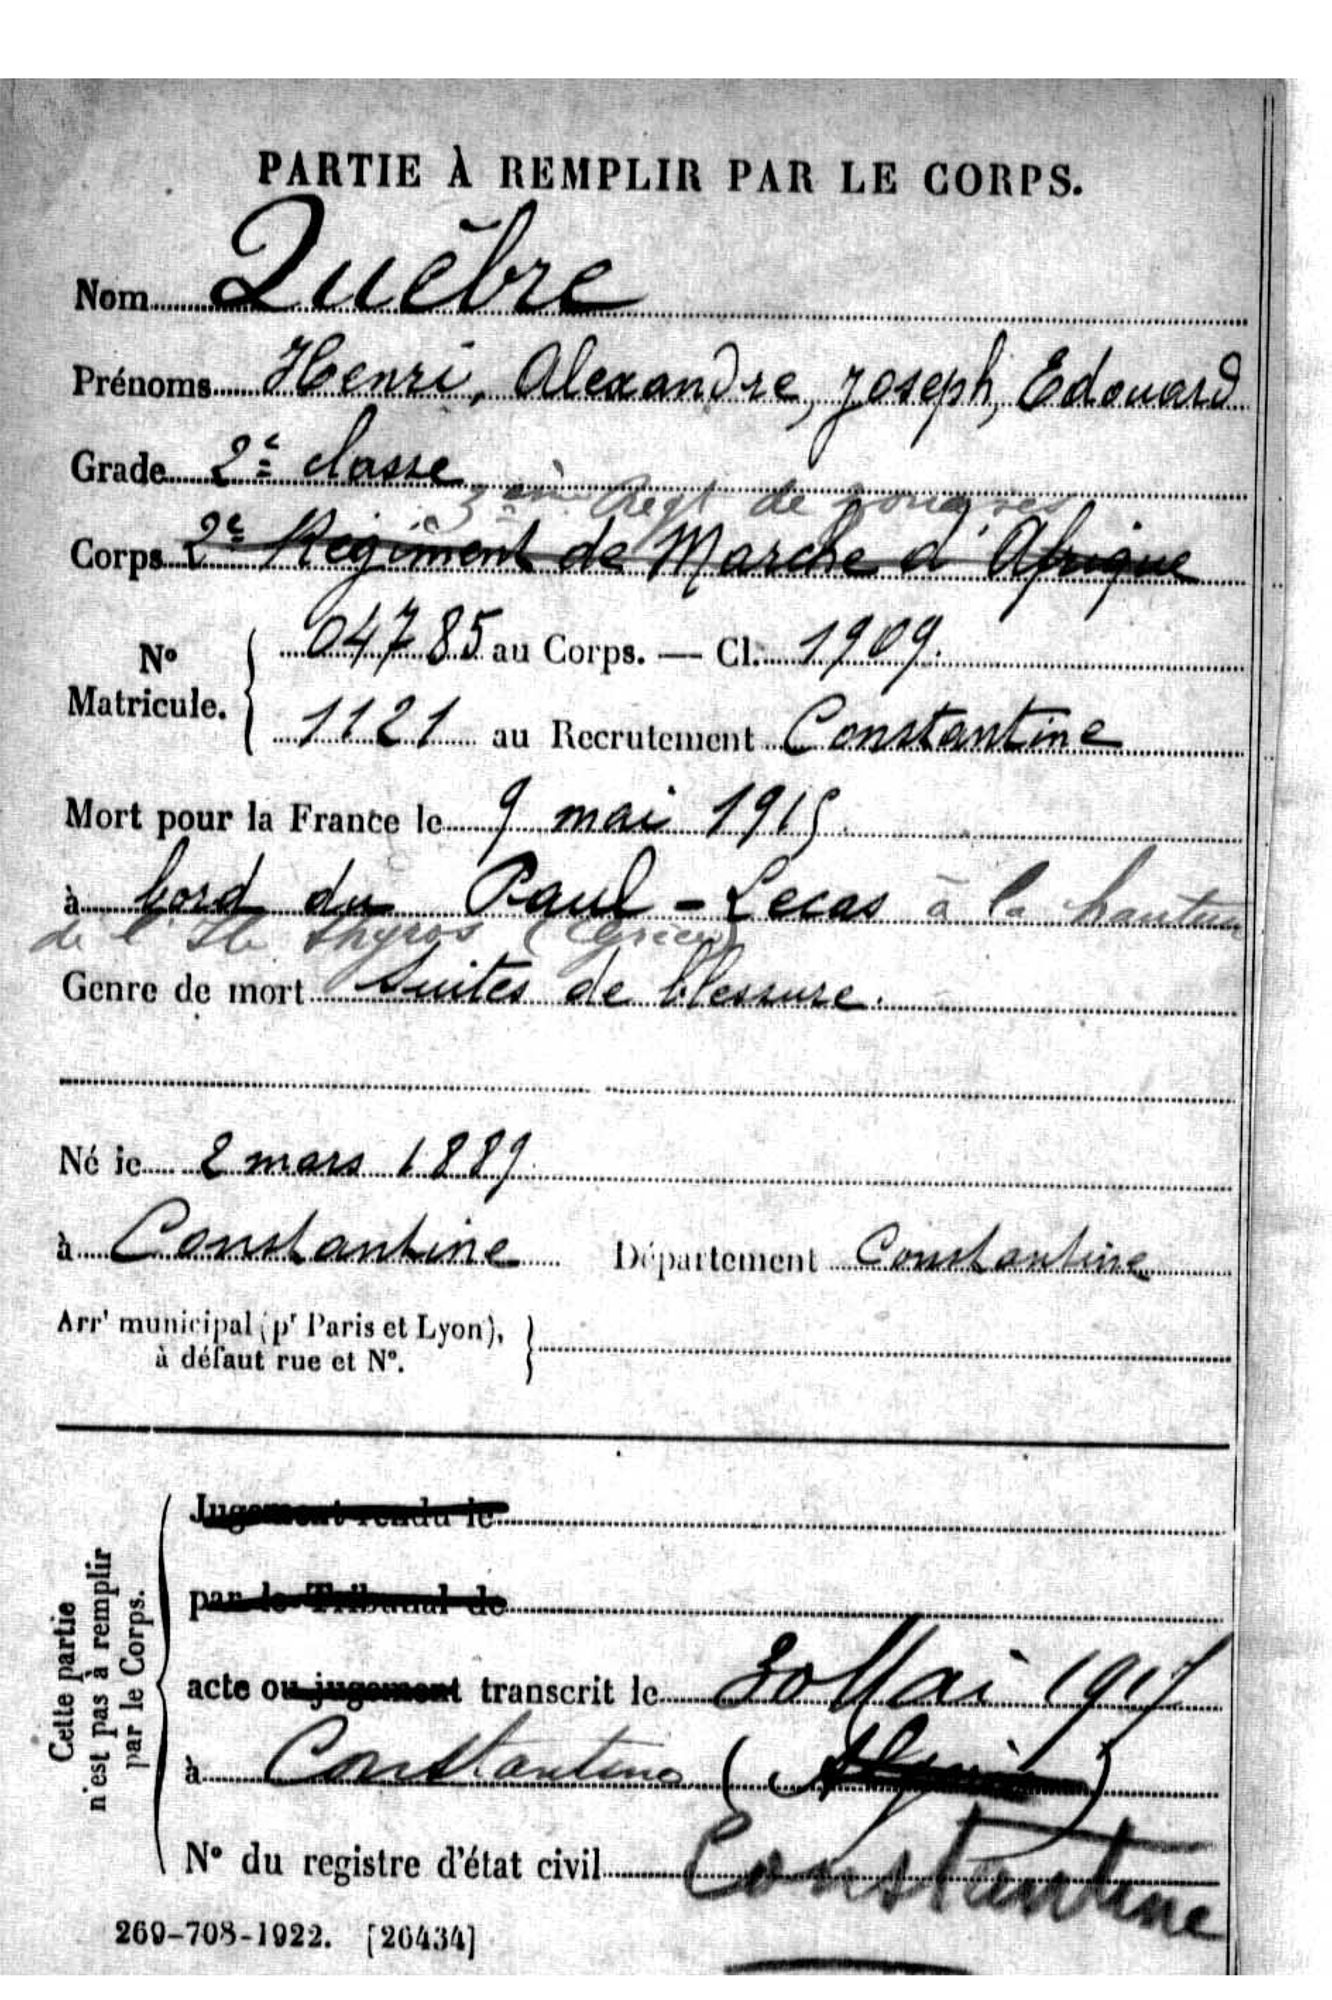 PARTIE À REMPLIR PAR LE CORPS.
Nom Quèbre
Prénoms Henri, Alexandre, Joseph, Edouard
Grade 2e classe
3ème Regt de zouaves
Corps 2e Régiment de Marche d'Afrique
No Matricule.
04785 au Corps. — Cl. 1909.
1121 au Recrutement Constantine
Mort pour la France le 9 mai 1915.
à bord du Paul-Lecas à la hauteur
de l'Ile Thyros (Grèce)
Genre de mort Suites de blessure.
Né le 2 mars 1889.
à Constantine Département Constantine
Arrt municipal (pr Paris et Lyon),
à défaut rue et No.
Cette partie
n'est pas à remplir
par le Corps.
Jugement rendu le
par le Tribunal de
acte ou jugement transcrit le 30 Mai 1917
à Constantine (
Constantine
No du registre d'état civil
269-708-1922. [26434]